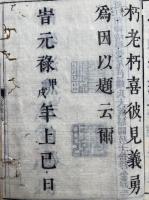 朽老朽喜彼見義勇
爲因以題云爾
旹元祿甲戌年上巳日